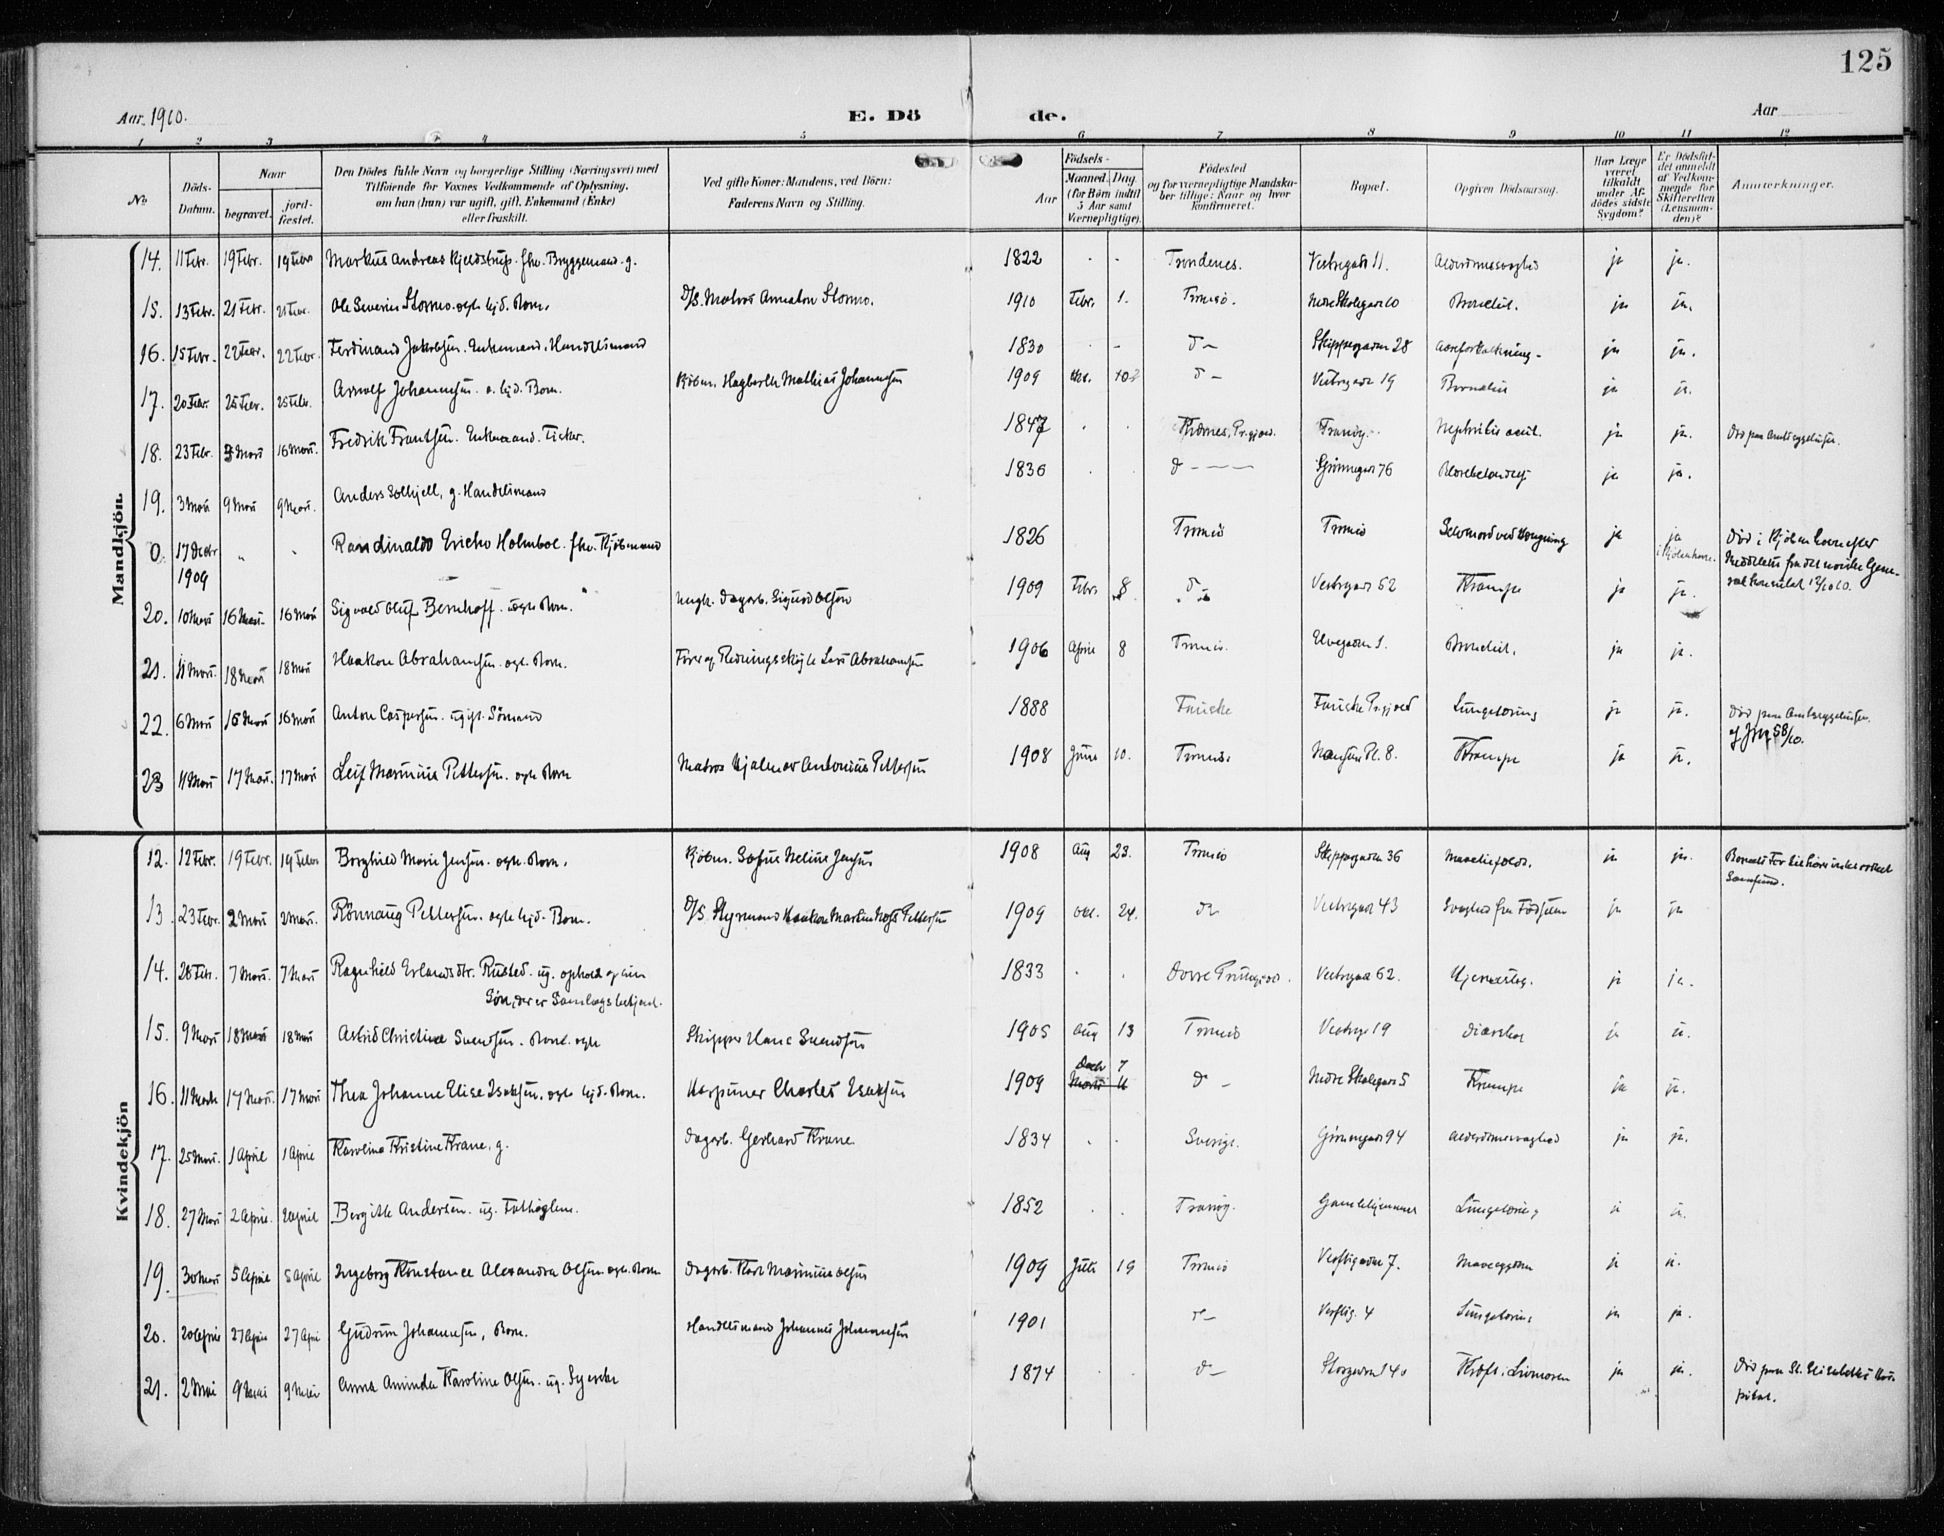 125
Aar 1910.
E. Dö de.
Aar
1 2 3 4 5 6 7 8 9 10 11 12
No
Döds-Datum.
Naar
begravet.
jord-fæstet.
Den Dödes fulde Navn og borgerlige Stilling (Næringsvei) med
Tilföiende for Voxnes Vedkommende af Oplysning,
om han (hun) var ugift, gift, Enkemand (Enke)
eller fraskilt.
Ved gifte Koner: Mandens, ved Börn:
Faderens Navn og Stilling.
Födsels-
Aar
Maaned. Dag
(for Börn indtil
5 Aar samt
Værnepligtige).
Födested
og for værnepligtige Mandska-
ber tillige: Naar og hvor
konfirmeret.
Bopæl.
Opgiven Dödsaarsag.
Har Læge
været
tilkaldt
under Af-
dödes sidste
Sygdom?
Er Dödsfal-
det anmeldt
af Vedkom-
mende for
Skifteretten
(Lensman-
den)?
Anmærkninger.
Mandkjön
14. 11 Febr. 19 Febr. 19 Febr Markus Andreas Kjeldstrup. fhv. Bryggemand. g. 1822 Trondenes. Vestregade 11. Alderdomssvaghed ja ja.
15. 13 Febr. 21 Febr. 21 Febr. Ole Severin Stormo. ægte lijd. Barn. D/S. Matros Anneton Stormo. 1910 Febr. 1. Tromsö. Nedre Skolegade 10 Bronchit. ja ja.
16. 15 Febr. 22 Febr. 22 Febr. Ferdinand Jakobsen. Enkemand. Handelsmand 1830 d- Skippergaden 28 Aareforkalkning- ja ja.
17. 20 Febr. 25 Febr. 25 Febr. Arnolf Johannesen. e. lijd. Barn. Kjöbm. Hagbarth Mathias Johannesen 1909 d- Vestregade 19 ja ja.
18. 23 Febr. Mars 16 Mars. Fredrik Frantsen. Enkemand. Fisker. 1847 Tranöy. Nephritis acut. ja ja. Död paa Amtssygehuset.
19. 3 Mars 9 Mars 9 Mars. Anders Solhjell, g. Handelsmand 1836 d- Grönnegade 76 ja ja.
0. 17 Decbr 1909 " " Randinaldo Ericho Holmboe. fhv. Kjöbmand 1826 Tromsö Tromsö Selvmord ved Hængning ja ja i Kjöbenhavn. Död i Kjöbenhavn efter
Meddelelse fra det norske Gene-
ralkonsulat
20. 10 Mars 16 Mars. 16 Mars Sigvald Oluf Bernhoff. uægte Barn. Ungk. Dagarb. Sigurd Olsen 1909 Febr. 8 d- Vestregade 52 Krampe ja ja.
21. 11 Mars. 18 Mars 18 Mars Haakon Abrahamsen. ægte Barn. Abrahamsen 1906 April 8 Tromsö. Elvegaden 1. Bronchit. ja ja.
22. 6 Mars 16 Mars 16 Mars Anton Caspersen. ugift. Sömand 1888 Fauske Fauske Prgjæld Lungetæring ja ja. Död paa Amtssygehuset.
23 11 Mars 17 Mars. 17 Mars Leif Marinius Pettersen. ægte Barn Matros Hjalmar Antonius Pettersen 1908 Juni 10. Tromsö. Nansens Pl. 8. Krampe ja ja.
Kvindekjön
12. 12 Febr. 19 Febr. 19 Febr Borghild Marie Jensen. ægte. Barn. Kjöbm. Sofus Nelius Jensen 1908 Aug 23. Tromsö Skippergaden 36 ja ja.
13. 23 Febr. 2 Mars 2 Mars. Rönnaug Pettersen. ægte lijd. Barn. D/S. Styrmand Haakon Martin Pettersen 1909 Oct. 24. do Vestregade 43 Svaghed fra Födselen ja ja
14. 28 Febr. 7 Mars. 7 Mars Ragnhild Erlandsdtr. Rusted. ug. ophold af sin
Sön, der er Samlagsbestyrer. 1833 Dovre Præstegjæld. Vestregade 62. Hjerneslag. ja ja.
15. 9 Mars 18 Mars 18 Mars Astrid Christine Svendsen. Barn. ægte Skipper Hans Svendsen 1905 Aug 13 Tromsö Vestregd 19 Diarrhoe ja ja.
16. 11 Marts 17 Mars. 17 Mars Thea Johanne Elise Isaksen. ægte lijd. Barn. Harpuner Charles Isaksen 1909 Decbr 7 Marts 11 d- Nedre Skolegade 5 Krampe ja ja.
17. 25 Mars. 1 April 1 April Karoline Kristine Krane, g. Dagarb. Gerhard Krane. 1834 Sverige. Grönnegade 94 Alderdomssvaghed ja ja.
18. 27 Mars 2 April. 2 April Bergitte Andersen. ug. Fattiglem. 1852 Tranöy. Gamlehjemmet Lungetæring ja ja.
19. 30 Mars 5 April 5 April Ingeborg Konstance Alexandra Olsen. ægte. Barn Dagarb. Karl Marinius Olsen 1909 Juli 19 Tromsö Verftsgaden 7. Mavesygdom ja ja.
20. 20 April 27 April 27 Apri Gudrun Johannesen, Barn. Handelsmand Johannes Johannesen 1901 d- Verftsg. 4 Lungetæring ja ja.
21. 2 Mai 9 Mai 9 Mai Anna Aminda Karoline Olsen. ug. Syerske 1874 d- Storgaden 140 Kræft i Livmoren ja ja. Död paa St. Elisabeths Hos-
pital.